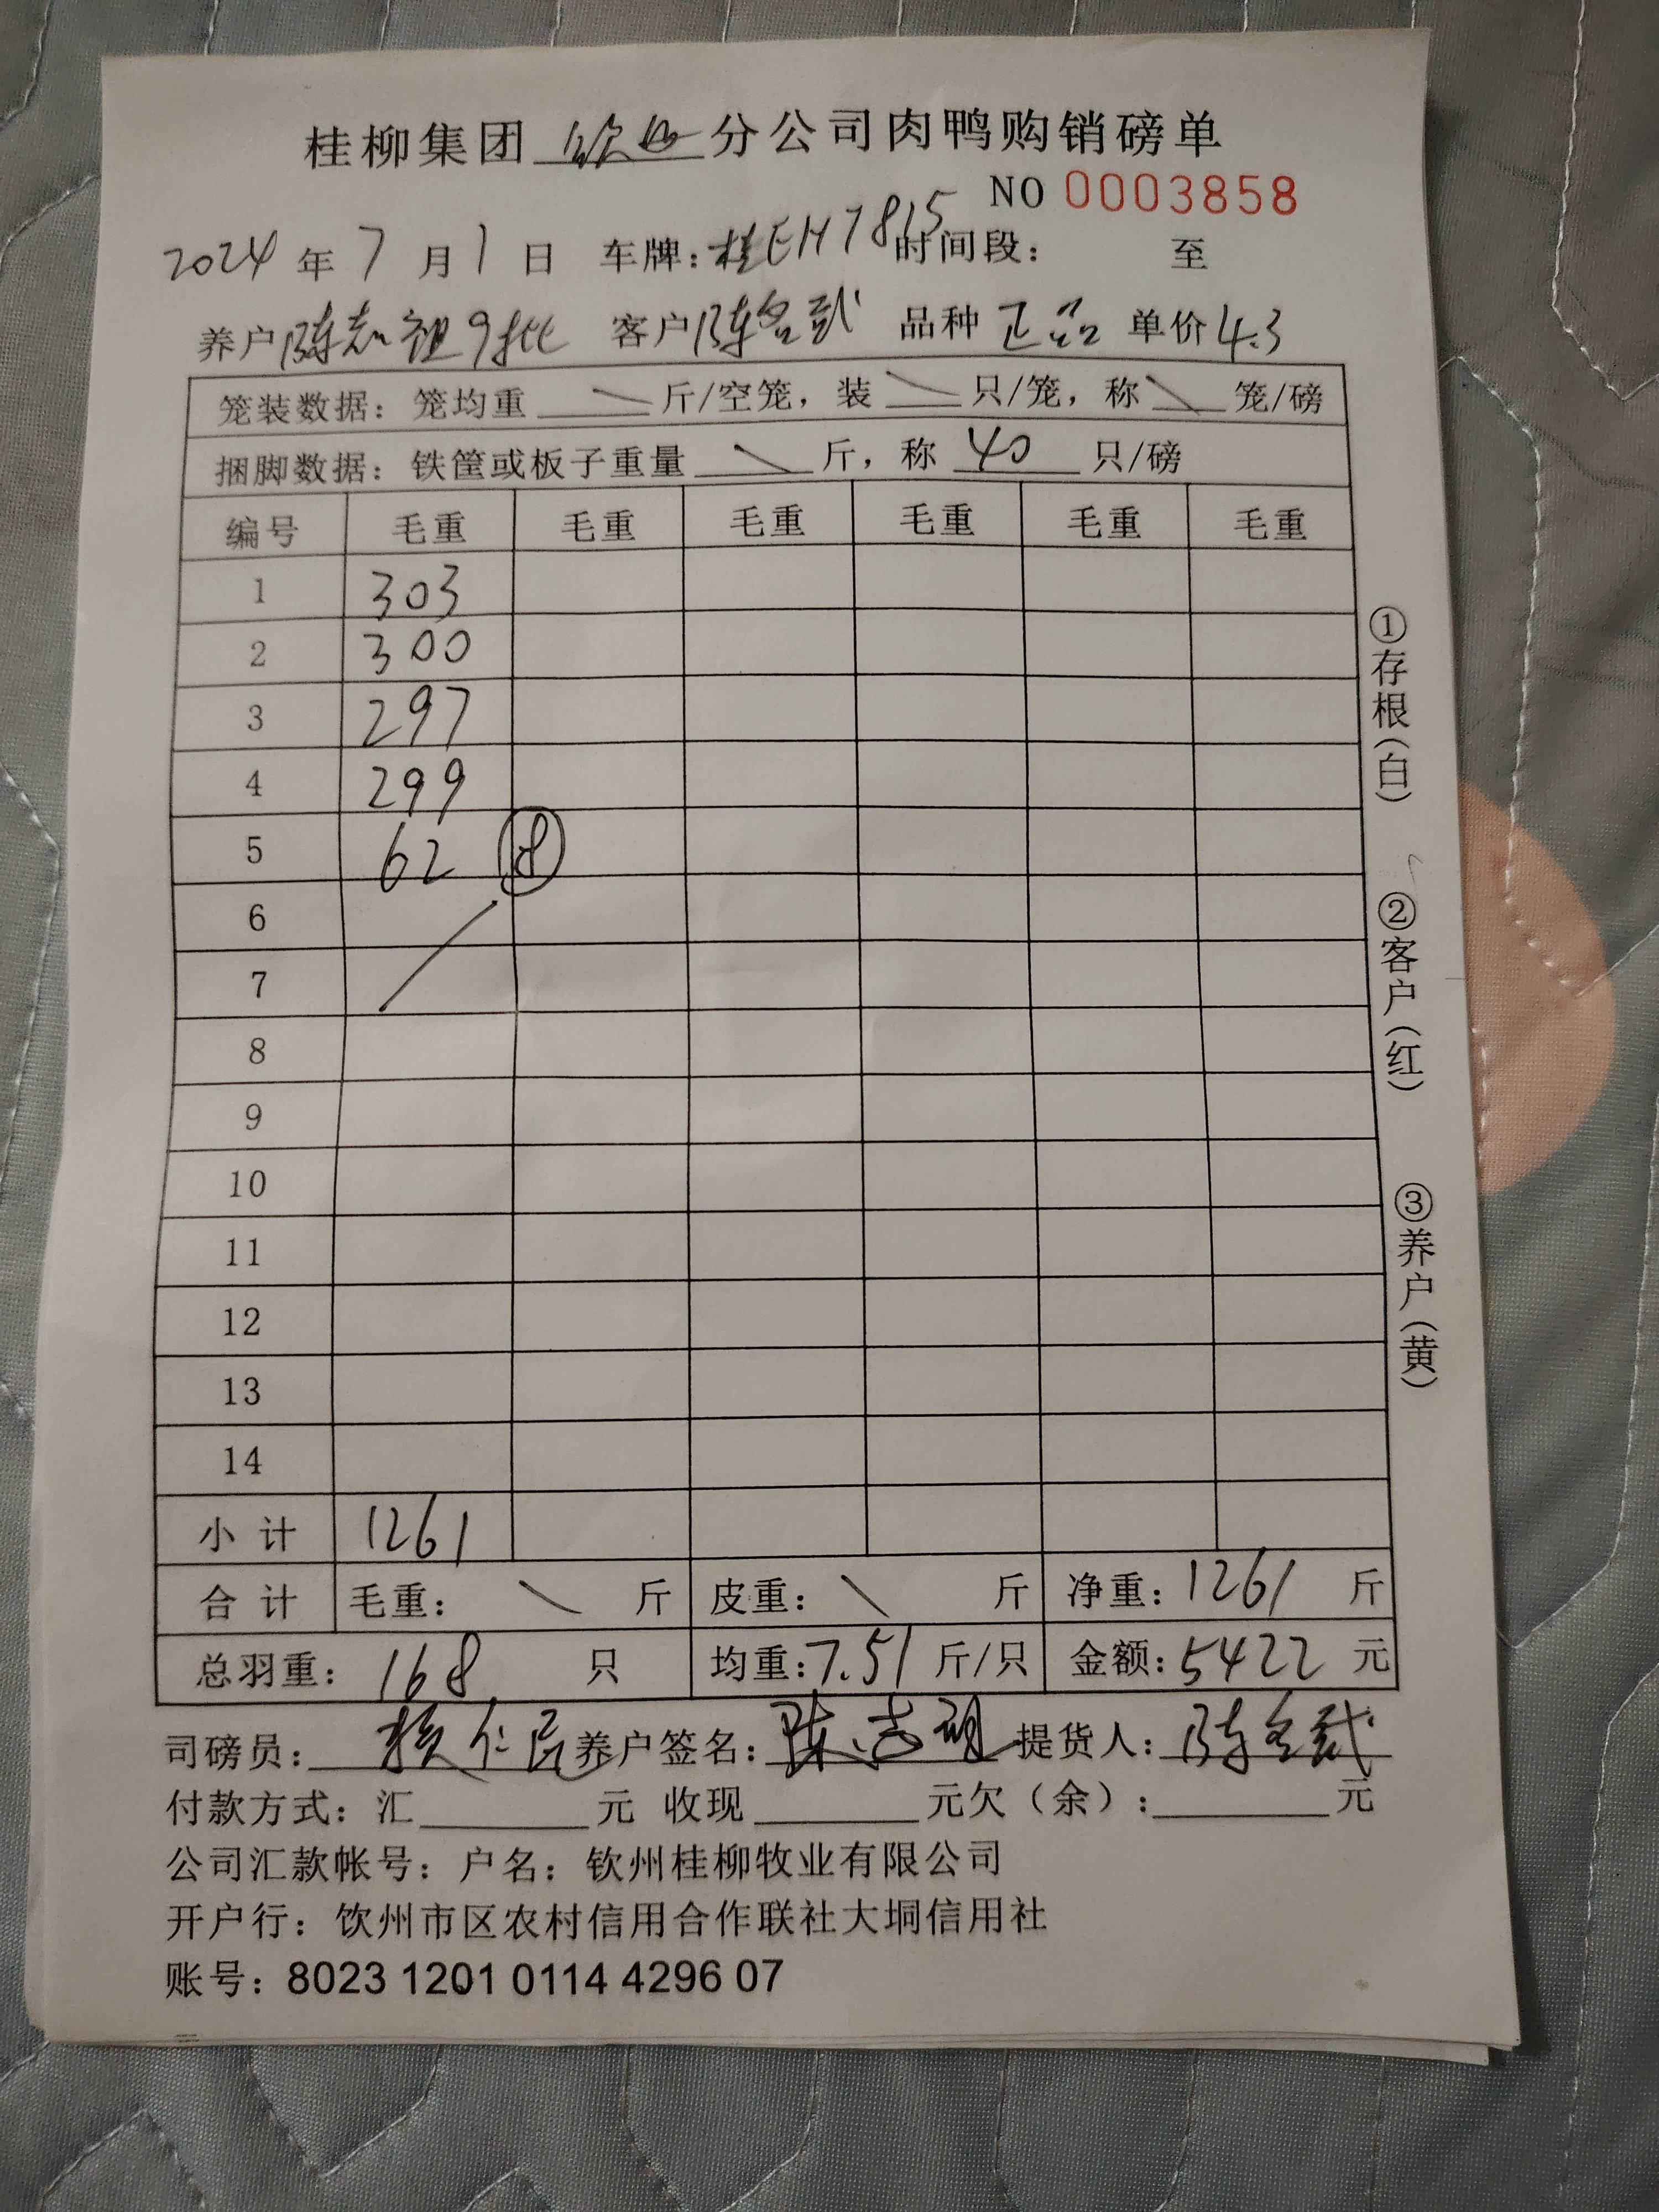 桂柳集团 钦州 分公司肉鸭购销磅单
NO 0003858
2024 年 7 月 1 日 车牌：桂EH7815 时间段： 至
养户 陈志祖9批 客户 陈名武 品种 正品 单价 4.3
笼装数据：笼均重 \ 斤/空笼，装 \ 只/笼，称 \ 笼/磅
捆脚数据：铁筐或板子重量 \ 斤，称 40 只/磅
编号 毛重 毛重 毛重 毛重 毛重 毛重
1 303
2 300
3 297
4 299
5 62 ⑧
6
7
8
9
10
11
12
13
14
小计 1261
合计 毛重： \ 斤 皮重： \ 斤 净重：1261 斤
总羽重：168 只 均重：7.51 斤/只 金额：5422 元
司磅员： 仁民 养户签名：陈志 提货人：陈名武
付款方式：汇 元 收现 元欠（余）： 元
公司汇款帐号：户名：钦州桂柳牧业有限公司
开户行：饮州市区农村信用合作联社大垌信用社
账号：8023 1201 0114 4296 07
①存根（白）
②客户（红）
③养户（黄）